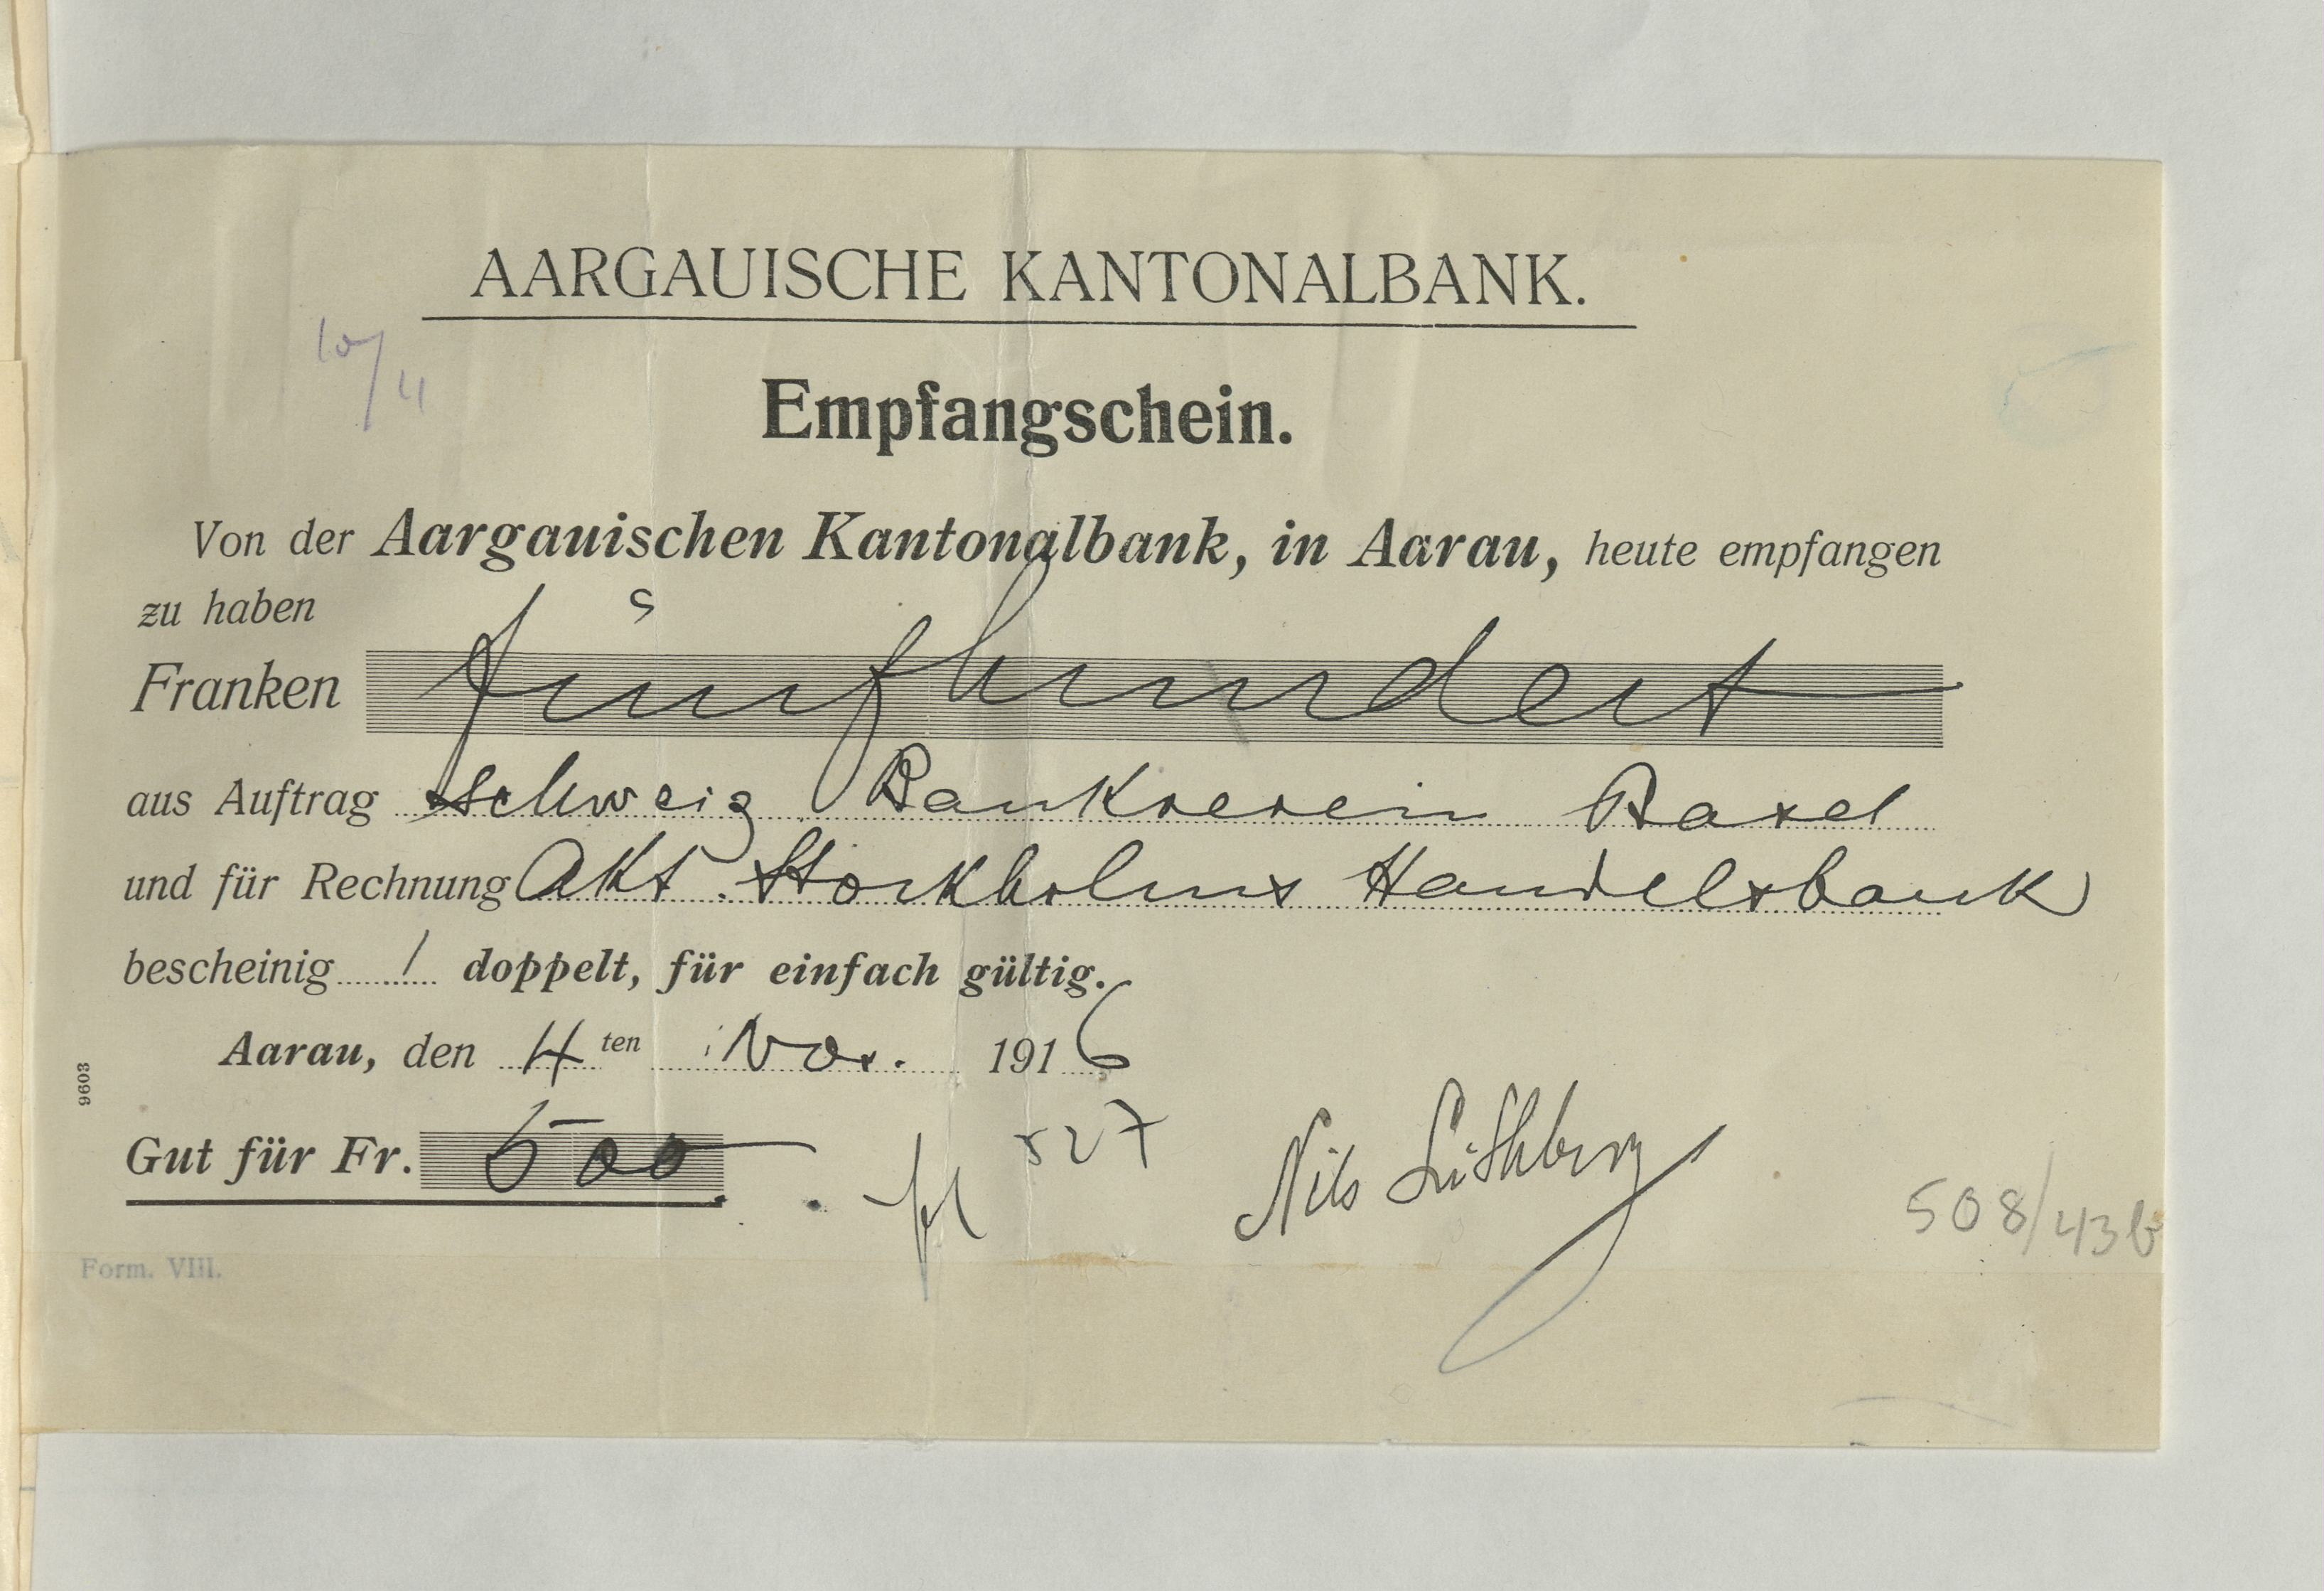 AARGAUISCHE KANTONALBANK.
10/4
Empfangschein.
Von der Aargauischen Kantonalbank, in Aarau, heute empfangen
zu haben
Franken fünfhundert
aus Auftrag Schweiz Bankverein Basel
und für Rechnung Akt. Stockholms Handelsbank
bescheinig / doppelt, für einfach gültig.
Aarau, den 4 ten Nov. 1916
9603
Gut für Fr. 500
527
Nils
508/43b
Form. VIII.